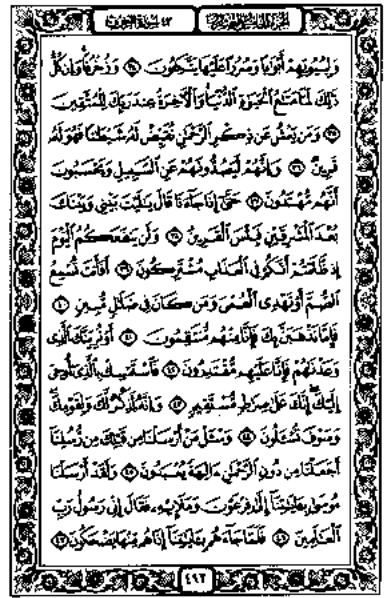 الجزء الخامس والعشرون
٤٣ سورة الزخرف
وَلِبُيُوتِهِمْ أَبْوَٰبًا وَسُرُرًا عَلَيْهَا يَتَّكِـُٔونَ ٣٤ وَزُخْرُفًا وَإِن كُلُّ
ذَٰلِكَ لَمَّا مَتَٰعُ ٱلْحَيَوٰةِ ٱلدُّنْيَا وَٱلْءَاخِرَةُ عِندَ رَبِّكَ لِلْمُتَّقِينَ
٣٥ وَمَن يَعْشُ عَن ذِكْرِ ٱلرَّحْمَٰنِ نُقَيِّضْ لَهُۥ شَيْطَٰنًا فَهُوَ لَهُۥ
قَرِينٌ ٣٦ وَإِنَّهُمْ لَيَصُدُّونَهُمْ عَنِ ٱلسَّبِيلِ وَيَحْسَبُونَ
أَنَّهُم مُّهْتَدُونَ ٣٧ حَتَّىٰٓ إِذَا جَآءَنَا قَالَ يَٰلَيْتَ بَيْنِى وَبَيْنَكَ
بُعْدَ ٱلْمَشْرِقَيْنِ فَبِئْسَ ٱلْقَرِينُ ٣٨ وَلَن يَنفَعَكُمُ ٱلْيَوْمَ
إِذ ظَّلَمْتُمْ أَنَّكُمْ فِى ٱلْعَذَابِ مُشْتَرِكُونَ ٣٩ أَفَأَنتَ تُسْمِعُ
ٱلصُّمَّ أَوْ تَهْدِى ٱلْعُمْىَ وَمَن كَانَ فِى ضَلَٰلٍ مُّبِينٍ ٤٠
فَإِمَّا نَذْهَبَنَّ بِكَ فَإِنَّا مِنْهُم مُّنتَقِمُونَ ٤١ أَوْ نُرِيَنَّكَ ٱلَّذِى
وَعَدْنَٰهُمْ فَإِنَّا عَلَيْهِم مُّقْتَدِرُونَ ٤٢ فَٱسْتَمْسِكْ بِٱلَّذِىٓ أُوحِىَ
إِلَيْكَ إِنَّكَ عَلَىٰ صِرَٰطٍ مُّسْتَقِيمٍ ٤٣ وَإِنَّهُۥ لَذِكْرٌ لَّكَ وَلِقَوْمِكَ
وَسَوْفَ تُسْـَٔلُونَ ٤٤ وَسْـَٔلْ مَنْ أَرْسَلْنَا مِن قَبْلِكَ مِن رُّسُلِنَآ
أَجَعَلْنَا مِن دُونِ ٱلرَّحْمَٰنِ ءَالِهَةً يُعْبَدُونَ ٤٥ وَلَقَدْ أَرْسَلْنَا
مُوسَىٰ بِـَٔايَٰتِنَآ إِلَىٰ فِرْعَوْنَ وَمَلَإِي۟هِۦ فَقَالَ إِنِّى رَسُولُ رَبِّ
ٱلْعَٰلَمِينَ ٤٦ فَلَمَّا جَآءَهُم بِـَٔايَٰتِنَآ إِذَا هُم مِّنْهَا يَضْحَكُونَ ٤٧
٤٩٢